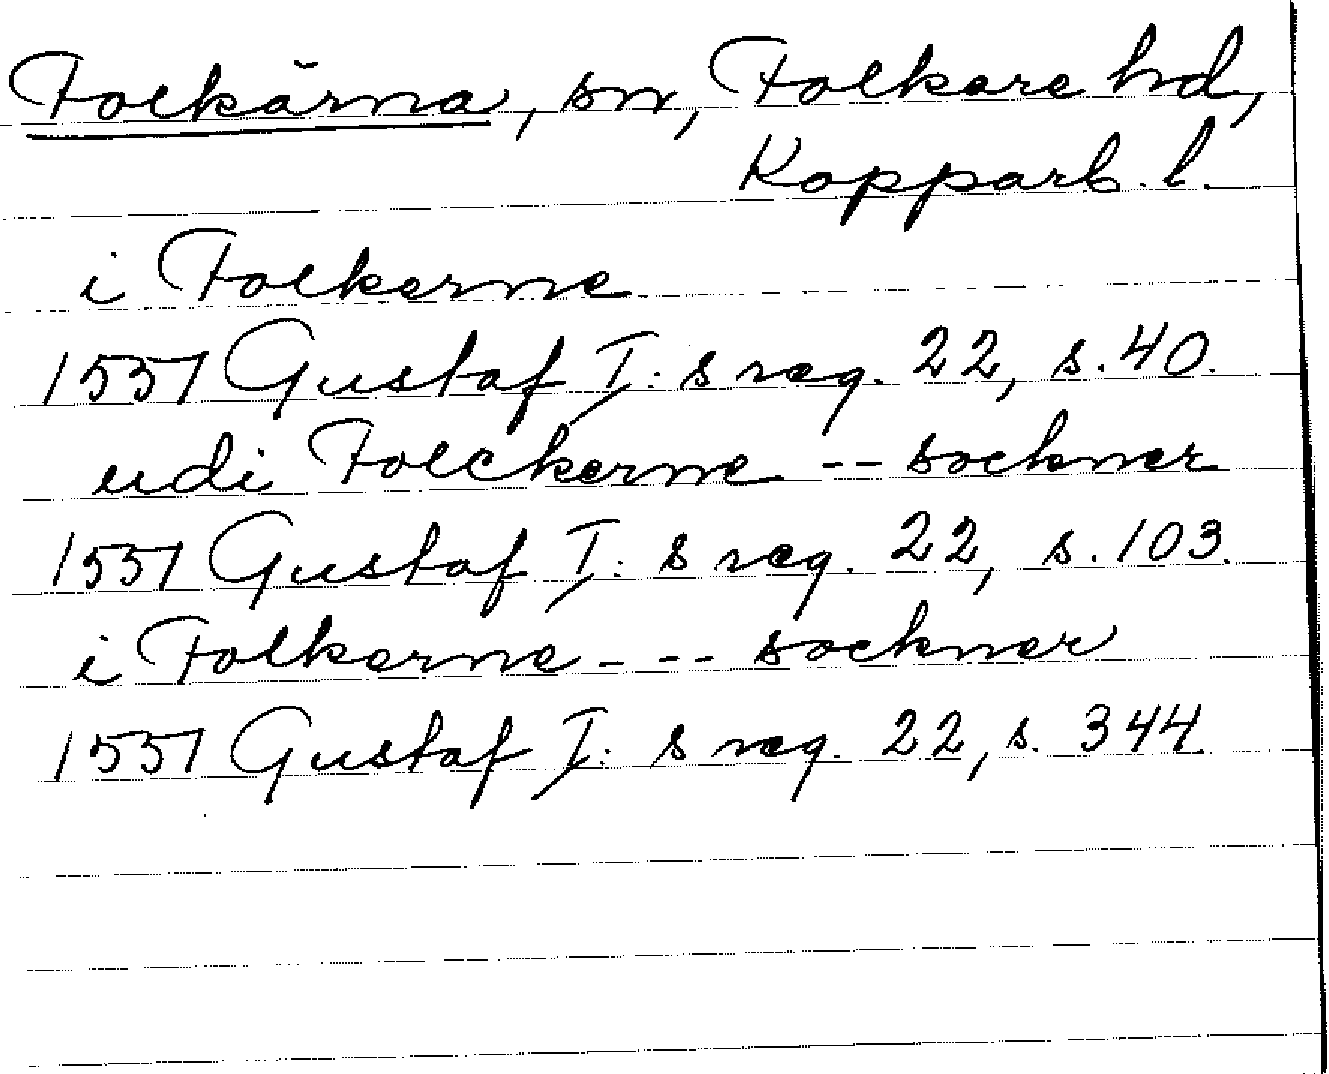 Folkärna, sn, Folkare hd,
Kopparb. l.
i Folkerne
1551 Gustaf I: s reg. 22, s. 40.
udi Folckerne -- sockner
1551 Gustaf I: s reg. 22, s. 103.
i Folkerne - -- sockner
1551 Gustaf I: s reg. 22, s. 344